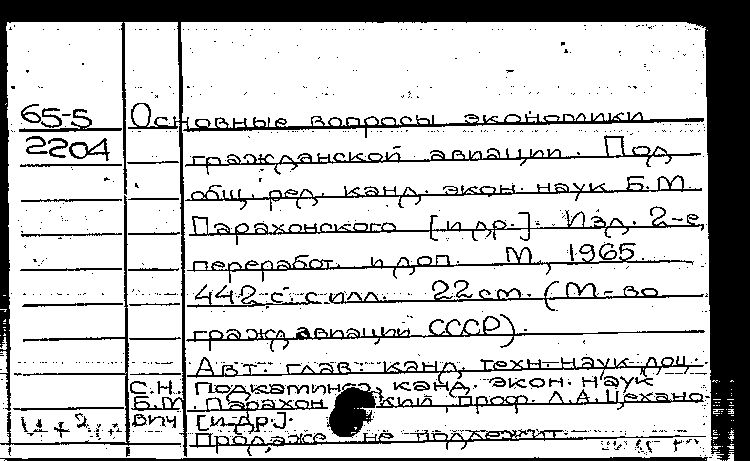 65-5 Основные вопросы экономики
2204 гражданской авиации. Под
общ. ред. канд. экон. наук Б.М.
Парахонского [и др.]. Изд. 2-е,
переработ. и доп. М., 1965
442 с. с илл. 22 см. (М-во
гражд. авиации СССР).
Авт. глав: канд. техн. наук доц.
С.Н. Подкаминер, канд. экон. наук
Б.М. Парахон кий, проф. Л.А. Цехано-
вич [и др.].
Продаже не подлежит.